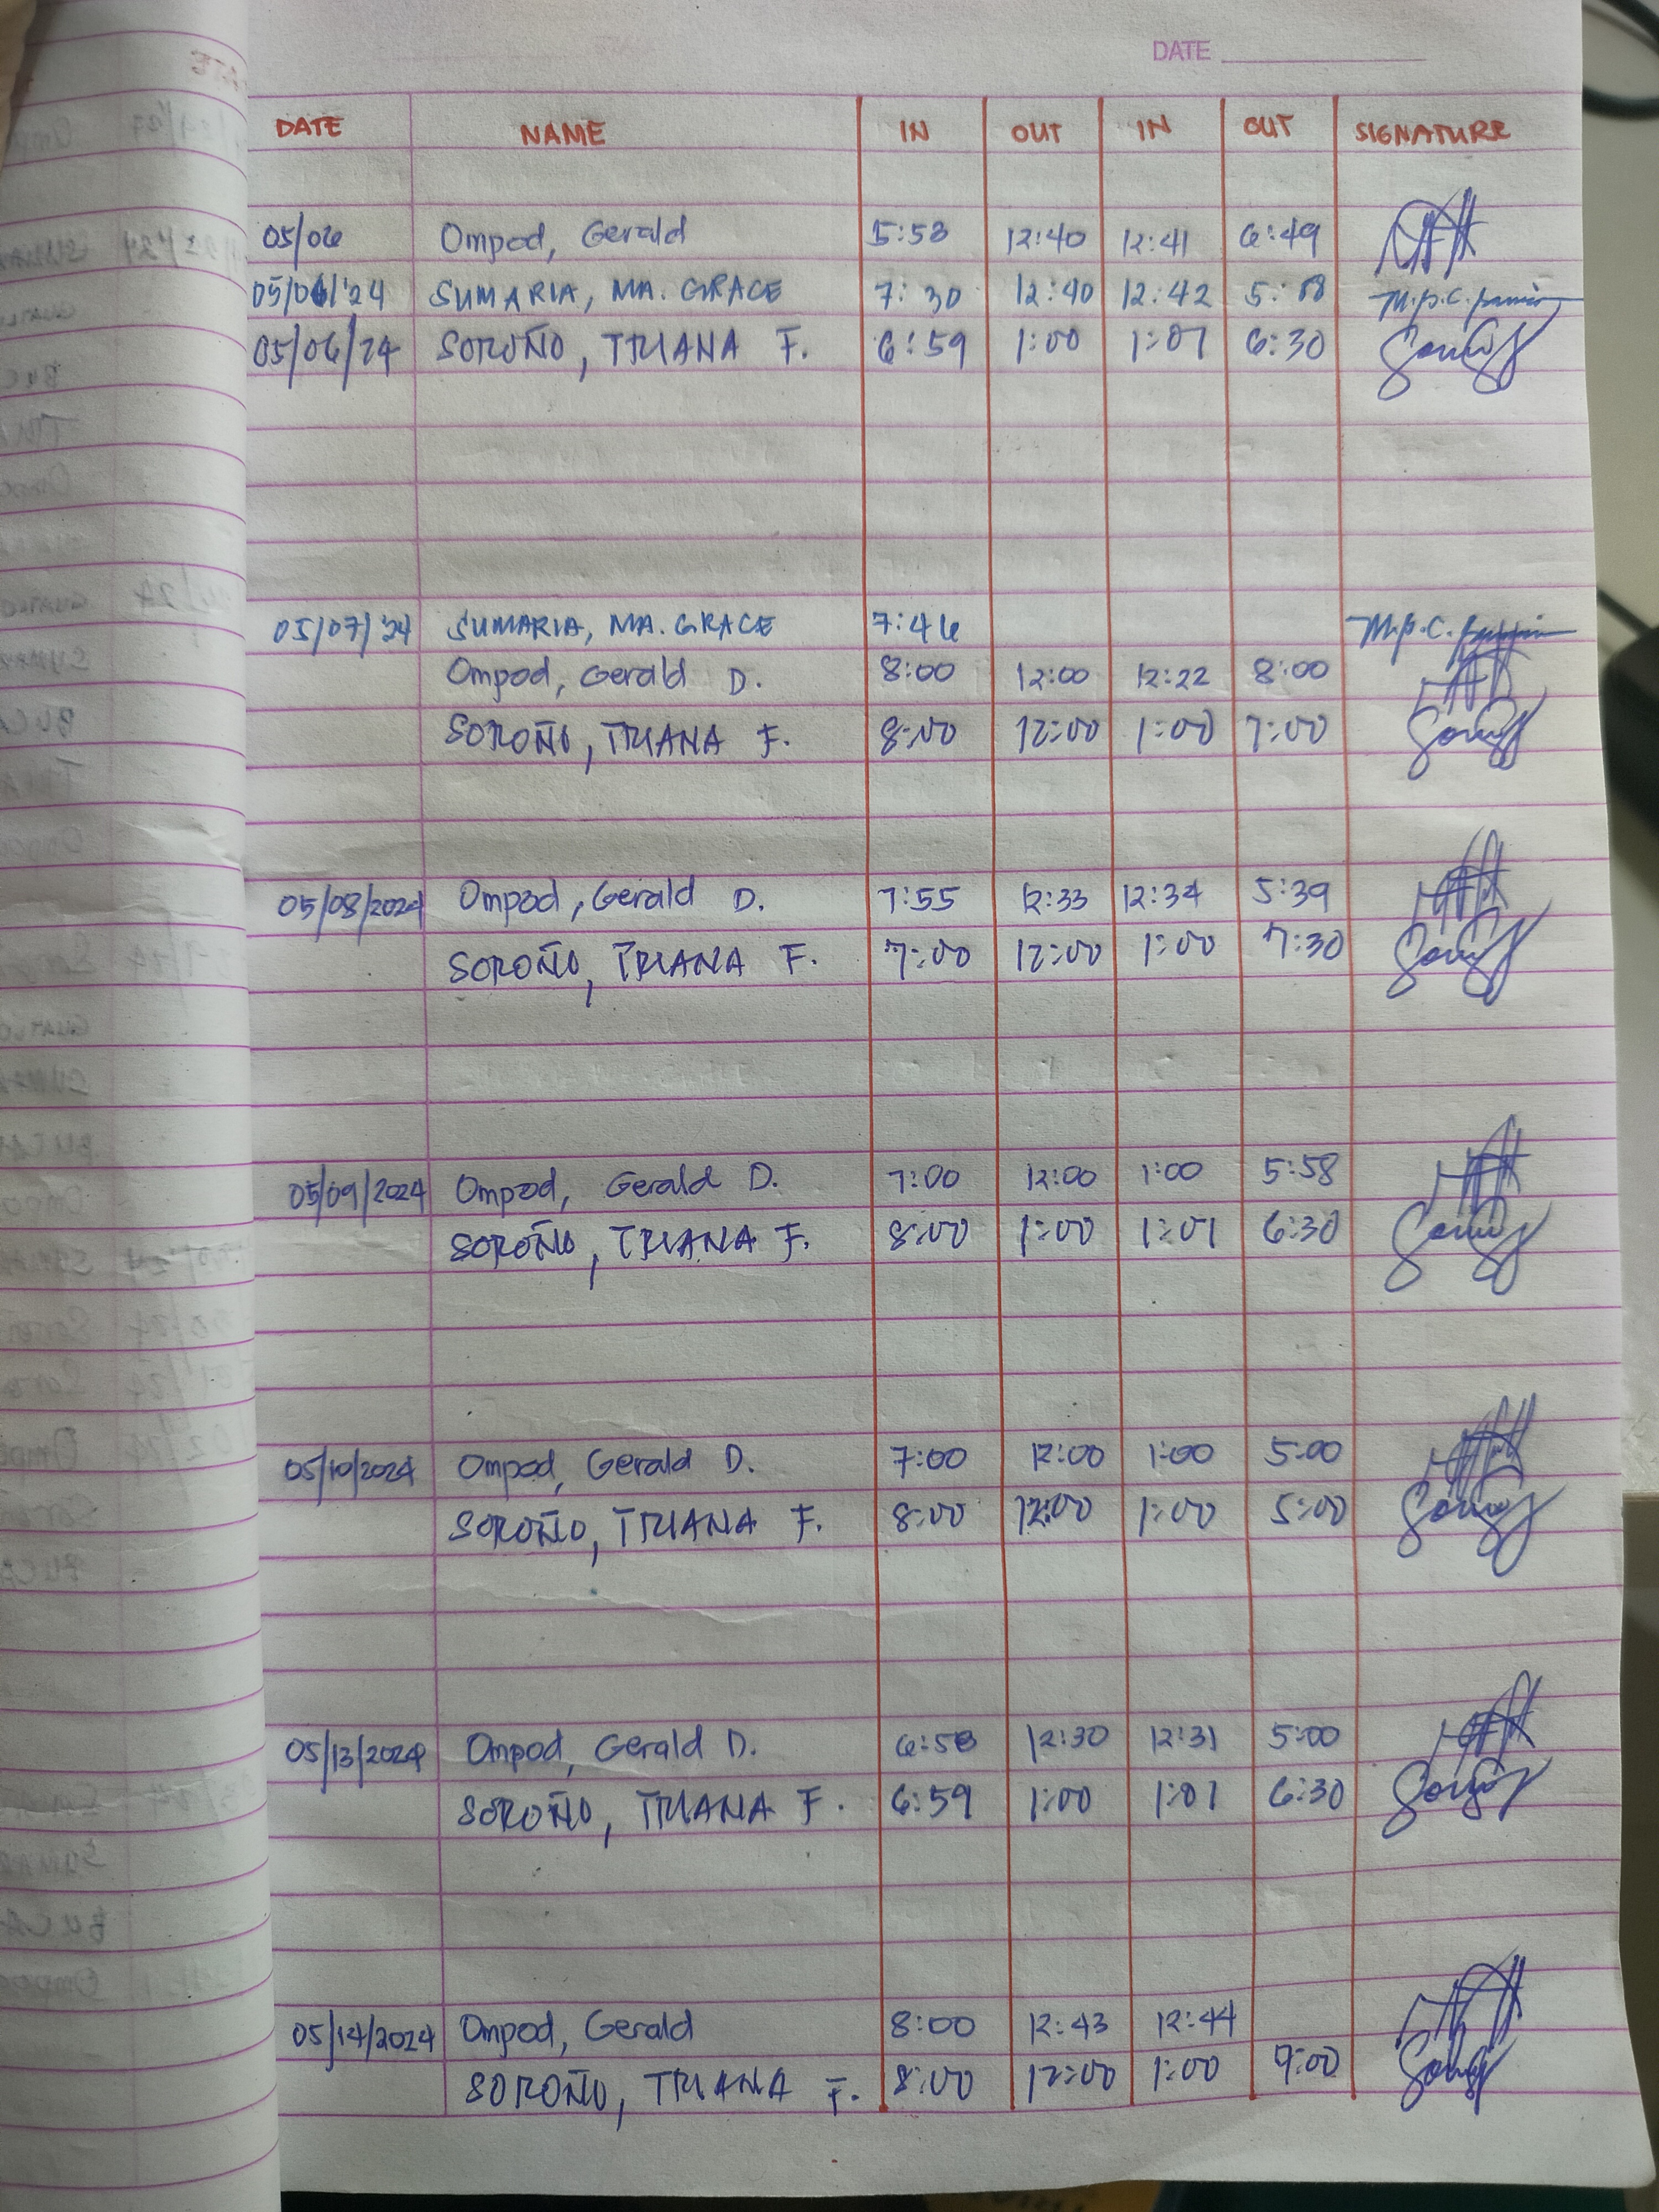 DATE
DATE NAME IN OUT IN OUT SIGNATURE
05/06 Ompod, Gerald 5:53 12:40 12:41 6:49
05/06/'24 SUMARIA, MA. GRACE 7:30 12:40 12:42 5:08
05/06/24 SOROÑO, TRIANA F. 6:59 1:00 1:01 6:30
05/07/'24 SUMARIA, MA. GRACE 7:46
Ompod, Gerald D. 8:00 12:00 12:22 8:00
SOROÑO, TRIANA F. 8:00 12:00 1:00 7:00
05/08/2024 Ompod, Gerald D. 7:55 12:33 12:34 5:39
SOROÑO, TRIANA F. 7:00 12:00 1:00 7:30
05/09/2024 Ompod, Gerald D. 7:00 12:00 1:00 5:58
SOROÑO, TRIANA F. 8:00 1:00 1:01 6:30
05/10/2024 Ompod, Gerald D. 7:00 12:00 1:00 5:00
SOROÑO, TRIANA F. 8:00 12:00 1:00 5:00
05/13/2024 Ompod, Gerald D. 6:58 12:30 12:31 5:00
SOROÑO, TRIANA F. 6:59 1:00 1:01 6:30
05/14/2024 Ompod, Gerald 8:00 12:43 12:44
SOROÑO, TRIANA F. 8:00 12:00 1:00 9:00